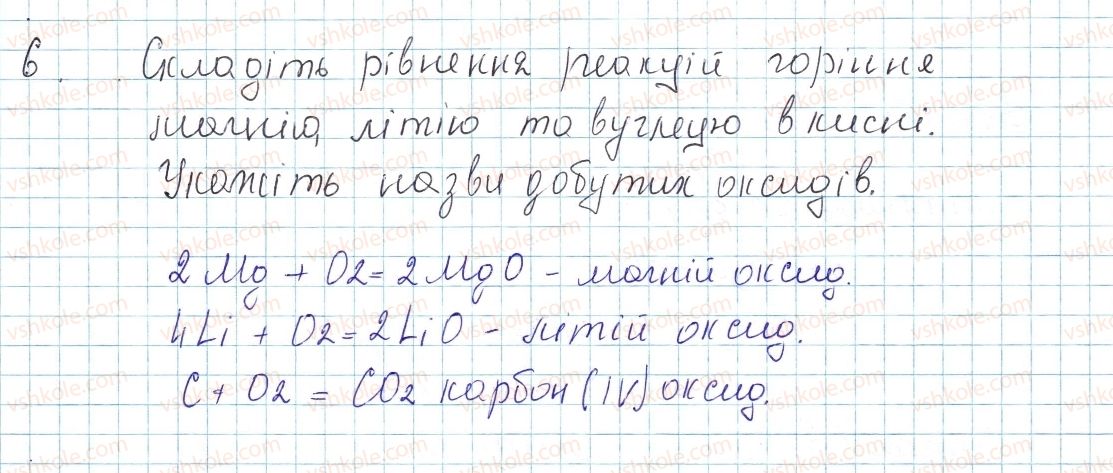 6. Складіть рівнення реакцій горіння
магнію, літію та вуглецю в кисні.
Укажіть назви добутих оксидів.
2Mg + O2 = 2MgO - магній оксид.
4Li + O2 = 2LiO - літій оксид.
C + O2 = CO2 карбон (IV) оксид.